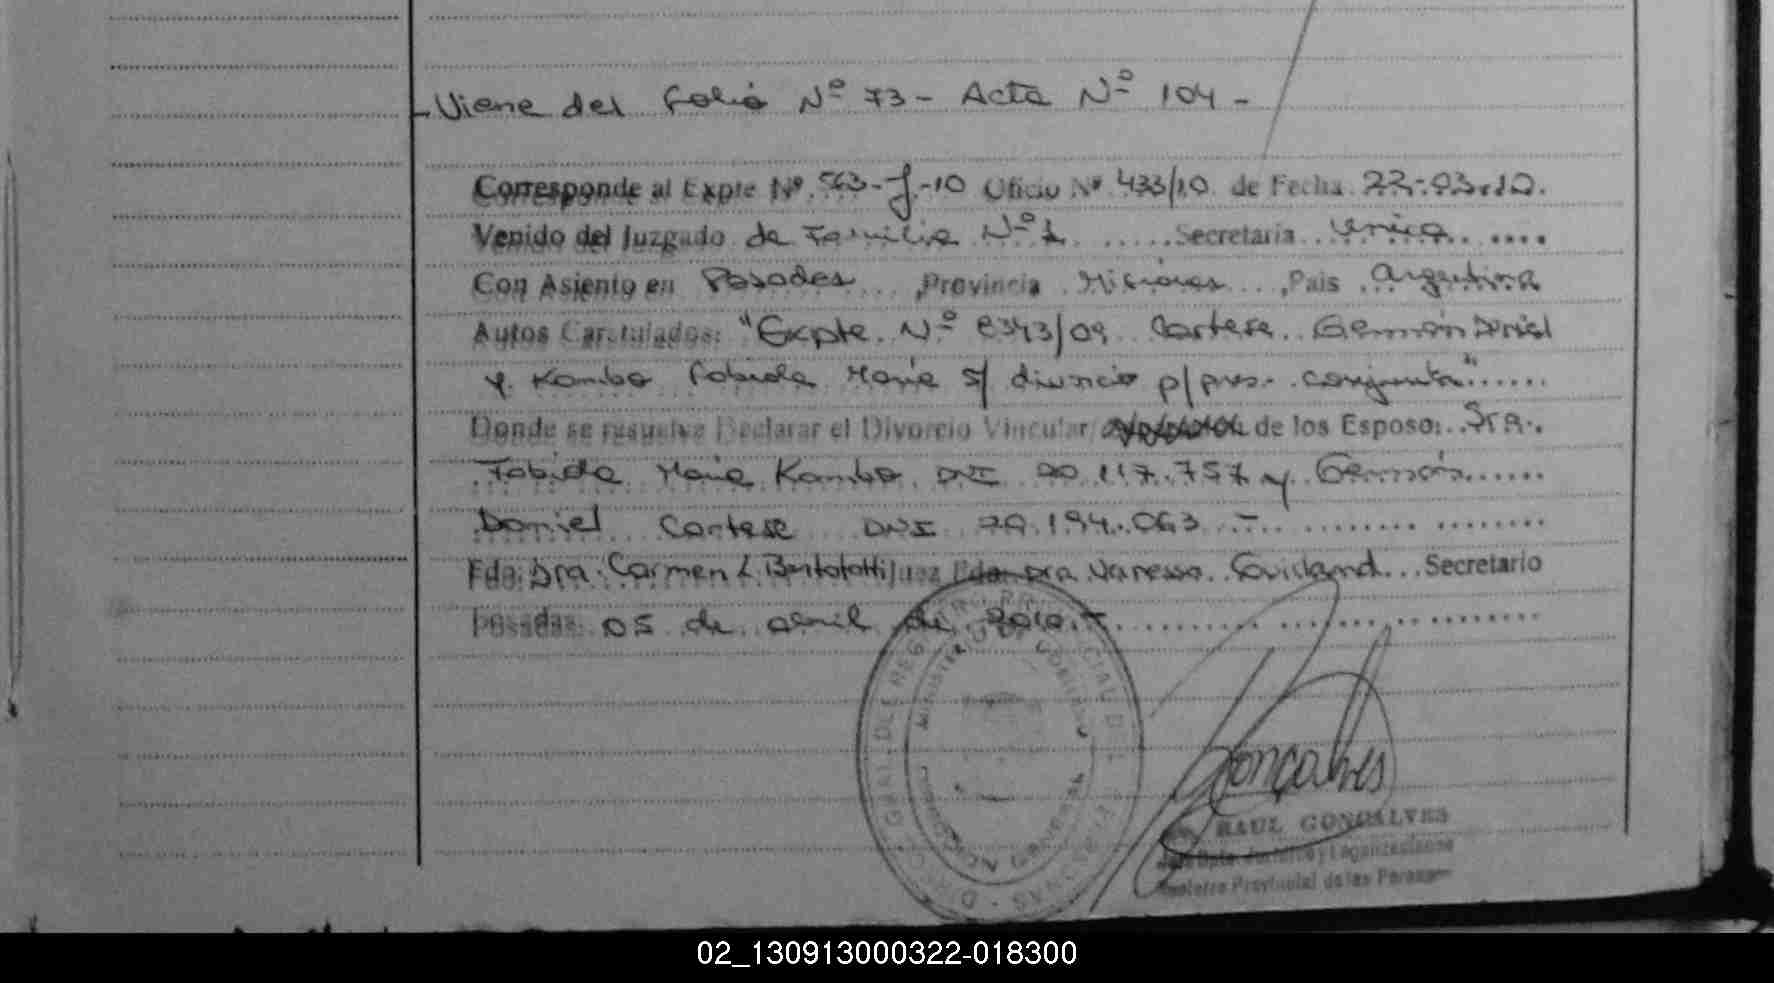 -Viene del folio Nº 73- Acta Nº 104-
Corresponde al Expte Nº 563-J-10 Oficio Nº 433/10 de Fecha 22-03-10.
Venido del Juzgado de Familia Nº 1 Secretaria Unica
Con Asiento en Posadas, Provincia Misiones, Pais Argentina
Autos Caratulados: "Expte. Nº 8343/09 Cortese Germán Daniel
y Kambo Fabiola María s/ divorcio p/pres. conjunta"
Donde se resuelve Declarar el Divorcio Vincular de los Esposo: Sra.
Fabiola María Kambo DNI 20.117.757 y Germán
Daniel Cortese DNI 20.194.063 -
Fdo: Dra. Carmen L. Bertolotti Juez Fdo. Dra Vanessa Secretario
Posadas 05 de abril de 2010.-
Gonçalves
RAUL GONÇALVES
Registro Provincial de las Personas
02_130913000322-018300